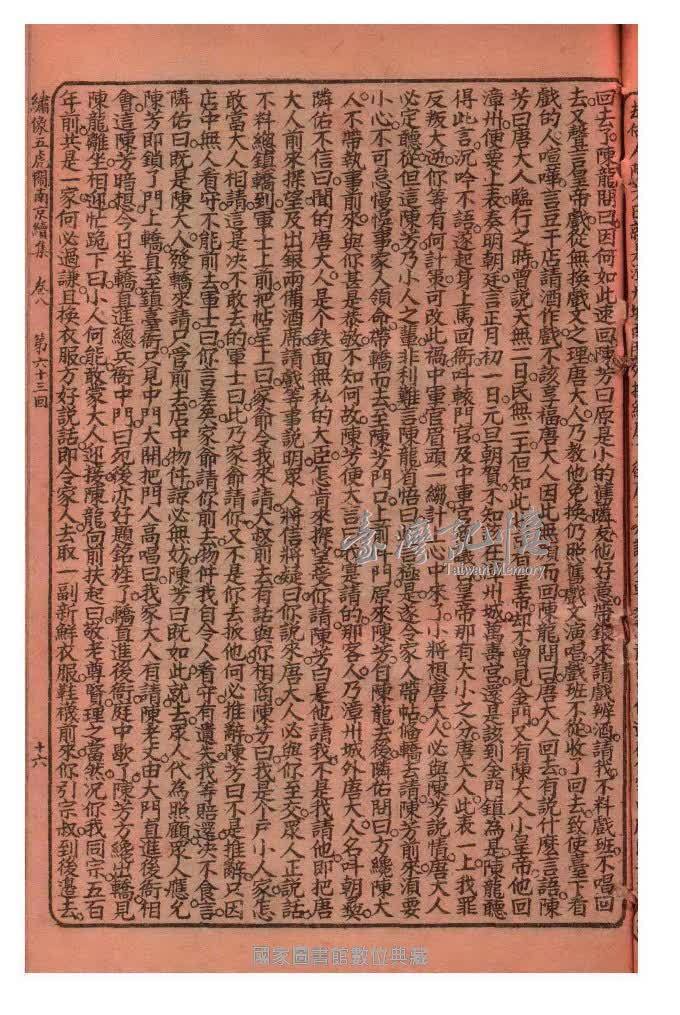 回去了陳龍問曰因何如此速回陳芳曰原是小的舊隣友他好意帶銀來請戲辨酒請我不料戲班不唱回
去又聲言皇帝戲從無換戲文之理唐大人乃教他免換仍照舊戲文演唱戲班不從收了回去致使臺下看
戲的人喧嘩言豆干店請酒作戲不該享福唐大人因此無頭而回陳龍問曰唐大人回去有說什麼言語陳
芳曰唐大人臨行之時曾說天無二日民無二王但知此皇帝却不曾見金門又有陳大人小皇帝他回
漳州便要上表奏明朝廷言正月初一日元旦朝賀不知該在州城萬壽宮還是該到金門鎮為是陳龍聽
得此言沉吟不語遂起身上馬回衙叫轅門官及中軍官皇帝那有大小之分唐大人此表一上我罪
反叛大逆你等有何計策可改此禍中軍官眉頭一縐計上心中來了小將想唐大人必與陳芳說情唐大人
必定聽從但這陳芳乃小人之輩非利難言陳龍有悟曰此極是遂令家人帶帖備轎去請陳芳前來須要
小心不可怠慢慢事家人領命帶轎而去至陳芳門口上前叫門原來陳芳自陳龍去後隣佑問曰方纔陳大
人不帶執事前來與你甚是恭敬不知何故陳芳便大言曰我是請的那客人乃漳州城外唐大人名叫朝舉
隣佑不信曰聞的唐大人是個鉄面無私的大臣怎肯來探望受你請陳芳曰是他請我不是我請他即把唐
大人前來探望及出銀兩備酒席請戲等事說明眾人將信將疑曰你說來唐大人必與你至交眾人正說話
不料總鎮轎到軍士上前把帖呈上曰家爺令我來請大叔前去有話與你相商陳芳曰我是個戶小人家怎
敢當大人相請這是决不敢去的軍士曰此乃家爺請你又不是你去扳他何必推辭陳芳曰不是推辭只因
店中無人看守不能前去軍士曰你言差矣家爺請你前去物件我自令人看守有遺失我等賠還决不食言
隣佑曰既是陳大人發轎來請只管前去店中物件諒必無妨陳芳曰既如此就去眾人代為照顧眾人應允
陳芳即鎖了門上轎直至鎮臺衙只見中門大開把門人高唱曰我家大人有請陳老丈由大門直進後衙相
會這陳芳暗想今日坐轎直進總兵衙中門曰死後亦好題銘旌了轎直進後衙庭中歇了陳芳方纔出轎見
陳龍離坐相迎忙跪下曰小人何能敢蒙大人迎接陳龍向前扶起曰敬老尊賢理之當然况你我同宗五百
年前共是一家何必過謙且換衣服方好説話即令家人去取一副新鮮衣服鞋襪前來你引宗叔到後邊去
繡像五虎鬧南京續集 卷八 第六十三回 十六
臺灣記憶
Taiwan Memory
國家圖書館數位典藏